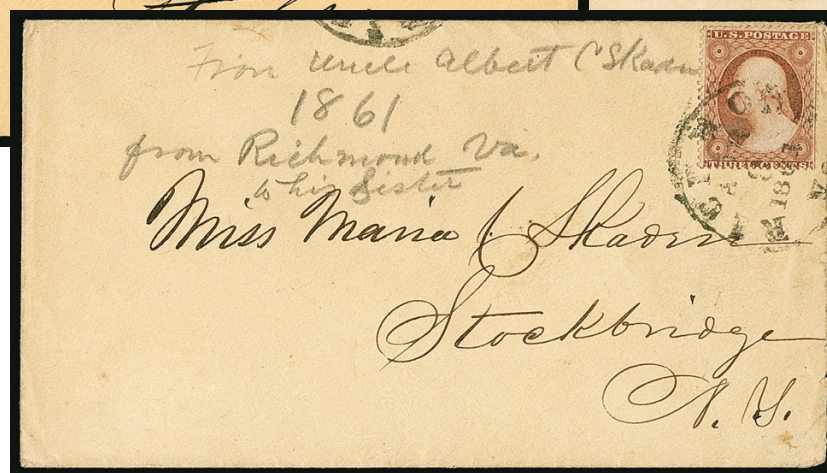 From Uncle Albert C Skaden
1861
from Richmond Va.
to his Sister
U.S. POSTAGE
THREE CENTS
RICHMOND
VA
186
Miss Maria C Skaden
Stockbridge
N. Y.